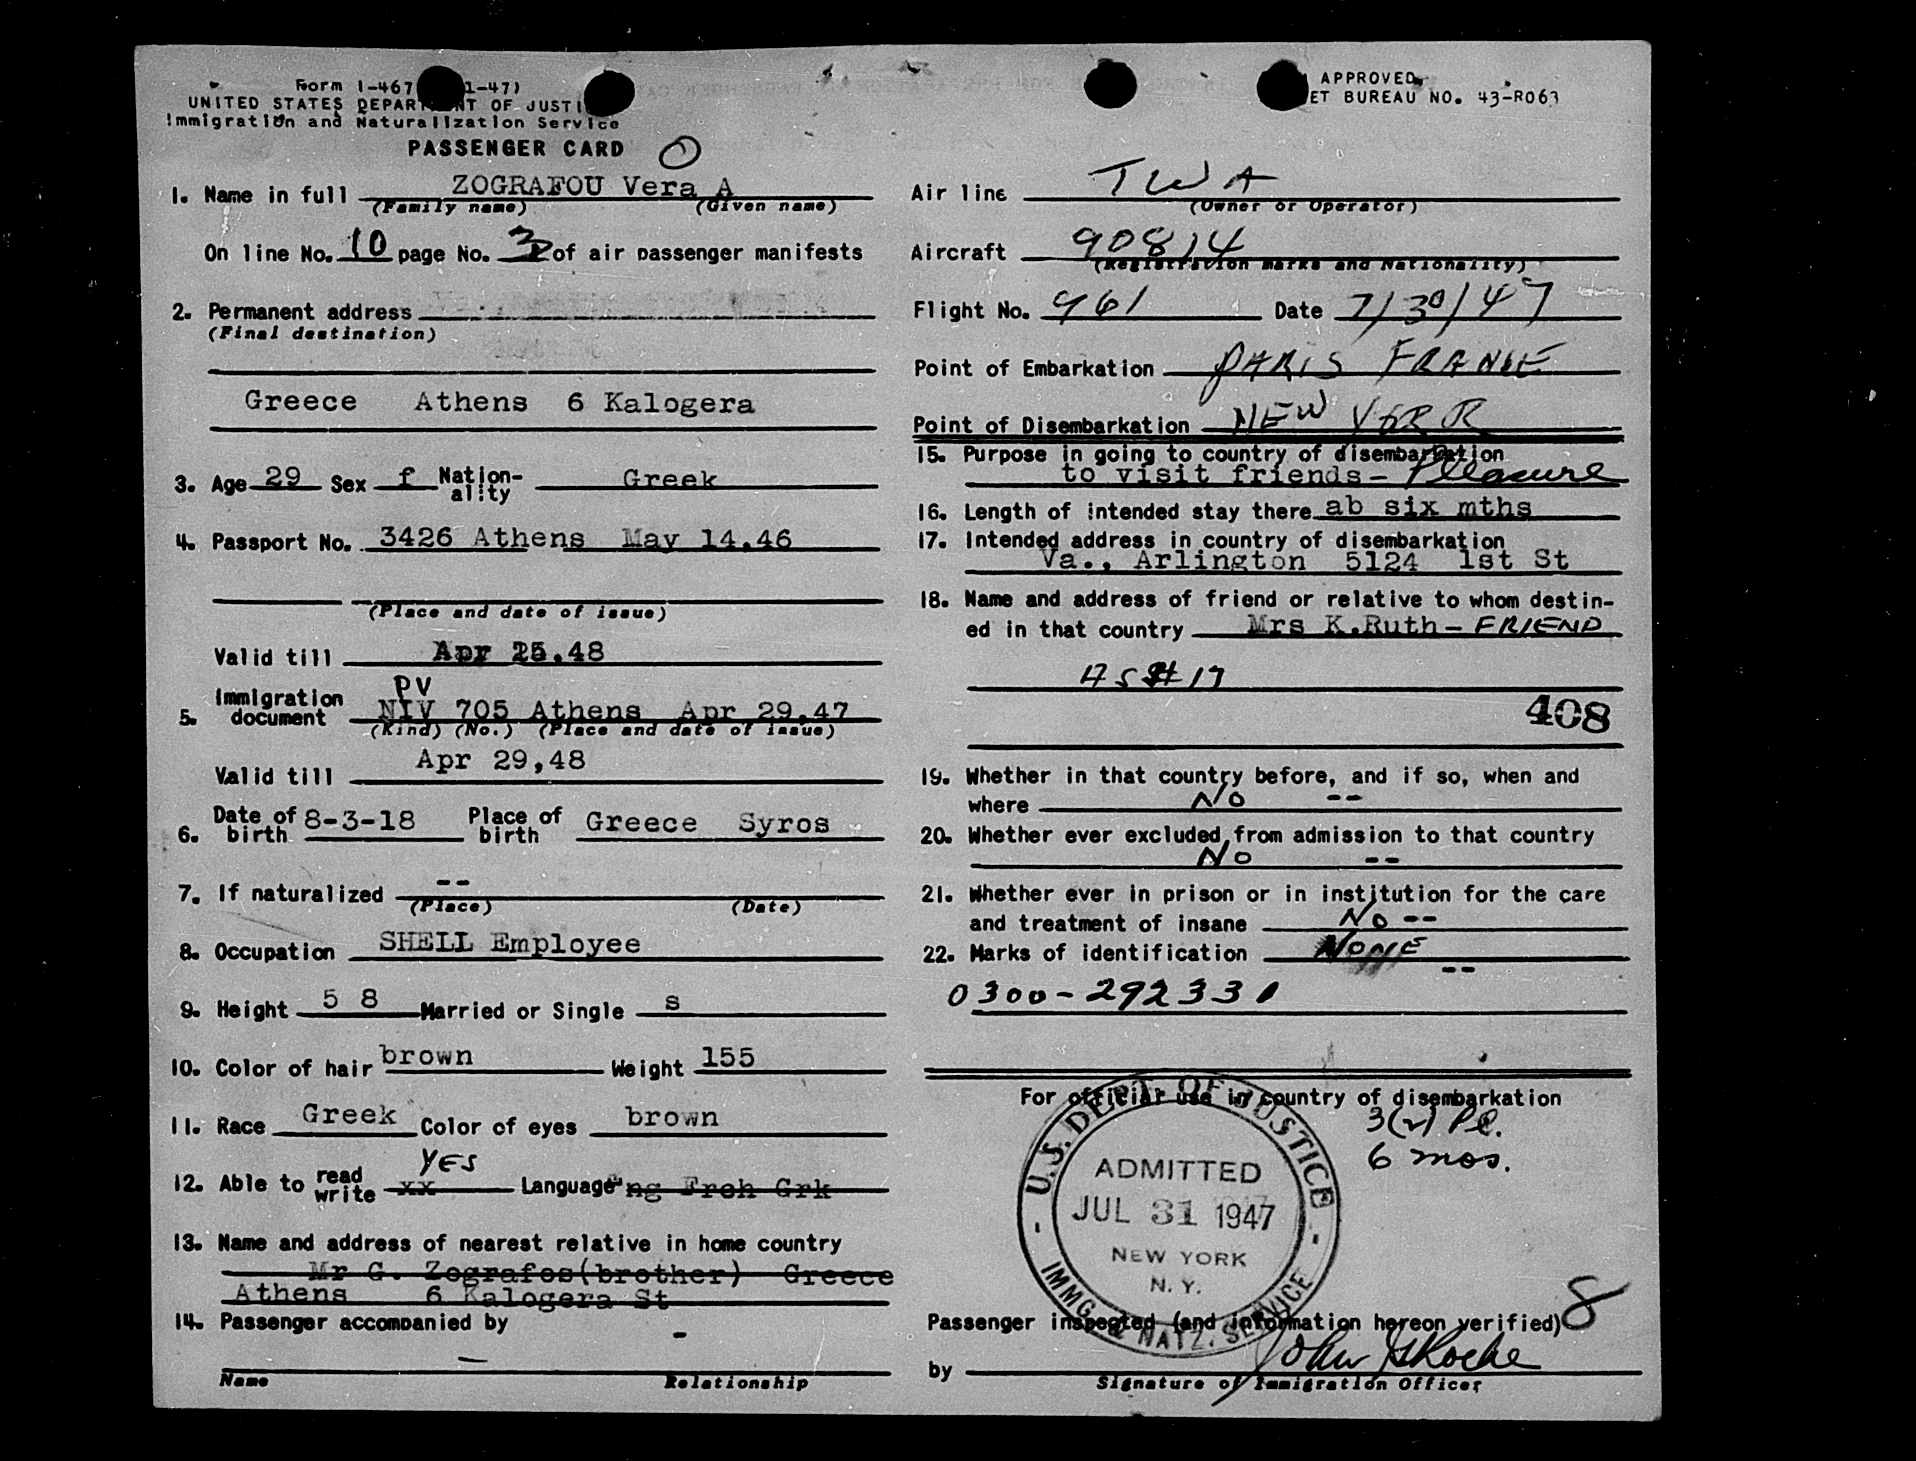 Form I-467 1-47)
UNITED STATES DEPARTMENT OF JUSTI
Immigration and Naturalization Service
PASSENGER CARD O
1. Name in full ZOGRAFOU Vera A
(Family name) (Given name)
On line No. 10 page No. 3 of air passenger manifests
2. Permanent address
(Final destination)
Greece Athens 6 Kalogera
3. Age 29 Sex f Nation-ality Greek
4. Passport No. 3426 Athens May 14.46
(Place and date of issue)
Valid till Apr 25.48
PV
5. Immigration document NIV 705 Athens Apr 29.47
(Kind) (No.) (Place and date of issue)
Valid till Apr 29,48
6. Date of birth 8-3-18 Place of birth Greece Syros
7. If naturalized --
(Place) (Date)
8. Occupation SHELL Employee
9. Height 5 8 Married or Single s
10. Color of hair brown Weight 155
11. Race Greek Color of eyes brown
YES
12. Able to read write xx Language ng Frch Grk
13. Name and address of nearest relative in home country
Mr G. Zografos(brother) Greece
Athens 6 Kalogera St
14. Passenger accompanied by -
Name Relationship
APPROVED
ET BUREAU NO. 43-R063
Air line TWA
(Owner or Operator)
Aircraft 90814
(Registration marks and Nationality)
Flight No. 961 Date 7/30/47
Point of Embarkation PARIS FRANCE
Point of Disembarkation NEW YORK
15. Purpose in going to country of disembarkation
to visit friends - Pleasure
16. Length of intended stay there ab six mths
17. Intended address in country of disembarkation
Va., Arlington 5124 1st St
18. Name and address of friend or relative to whom destin-
ed in that country Mrs K.Ruth - FRIEND
AS # 17
408
19. Whether in that country before, and if so, when and
where NO --
20. Whether ever excluded from admission to that country
NO --
21. Whether ever in prison or in institution for the care
and treatment of insane NO --
22. Marks of identification NONE --
0300-292331
For official use in country of disembarkation
3(2) Pl.
6 mos.
U.S. DEPT. OF JUSTICE
ADMITTED
JUL 31 1947
NEW YORK
N. Y.
IMMG. & NATZ. SERVICE
Passenger inspected (and information hereon verified) 8
by John J Roche
Signature of Immigration Officer